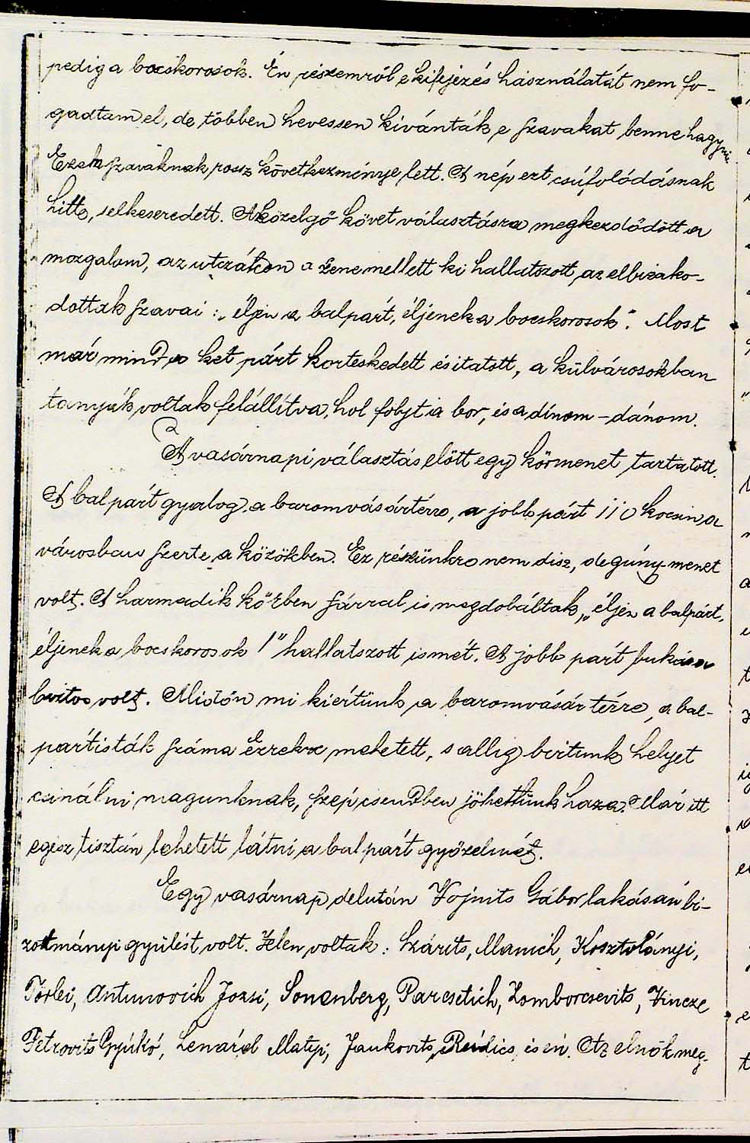 pedig a bocskorosok. Én részemről e kifejezés használatát nem fo-
gadtam el, de többen hevessen kivánták e szavakat benne hagyni
Ezek szavaknak rossz következménye lett. A nép ezt csúfolódásnak
hitte, s elkeseredett. A közelgő követválasztásra megkezdődött a
mozgalom, az utczákon a zene mellett ki hallatszott, az elbizako-
dottak szavai: „éljen a balpárt, éljenek a bocskorosok". Most
már mind a két párt korteskedett és itatott, a külvárosokban
tanyák voltak felállítva, hol folyt a bor, és a dínom-dánom.
A vasárnapi választás előtt egy körmenet tartatott.
A balpárt gyalog a baromvásártérre, a jobb párt 110 kocsin a
városban szerte, a közökben. Ez részünkre nem disz, de gúny menet
volt. A harmadik közben sárral is megdobáltak, „éljen a balpárt,
éljenek a bocskorosok!" hallatszott ismét. A jobb párt bukása
biztos volt. Midőn mi kiértünk a baromvásár térre, a bal-
pártisták száma ezrekre mehetett, s allig birtunk helyet
csinálni magunknak, szép csendben jöhettünk haza. Már itt
egész tisztán lehetett látni a balpárt győzelmét.
Egy vasárnap délután Vojnits Gábor lakásán bi-
zottmányi gyülést volt. Jelen voltak: Szárits, Mamich, Kosztolányi,
Törlei, Antunovich Jozsi, Sonenberg, Parcsetich, Zomborcsevits, Vincze
Petrovits Gyúkó, Lenárd Matyi, Jankovits, Reidics, és én. Az elnök meg-